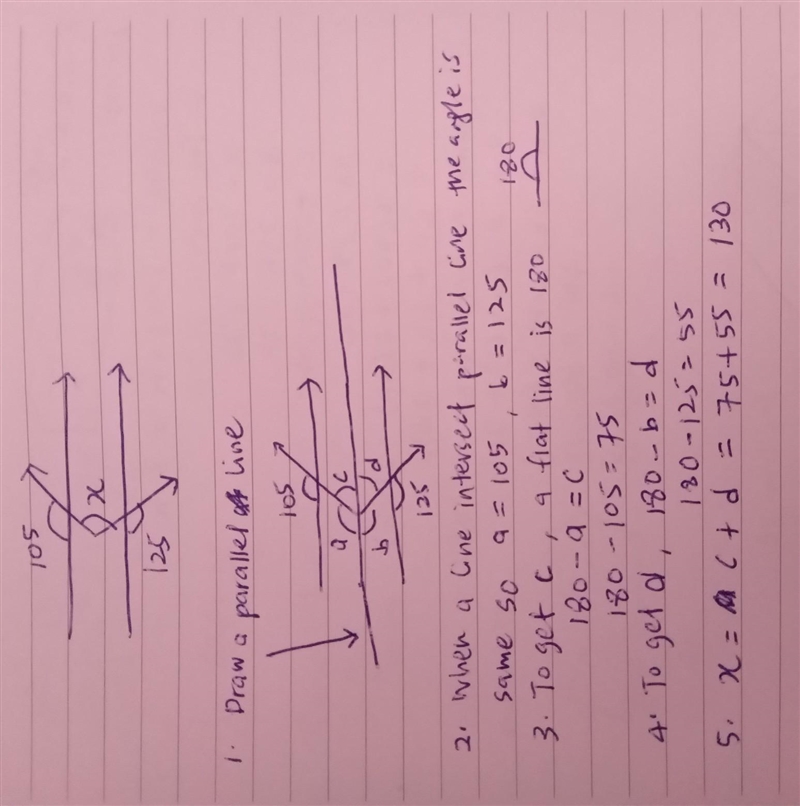 105
x
125
1. Draw a parallel line
105
a
c
b
d
125
2. when a line intersect parallel line the angle is
same so a = 105, b = 125
3. To get c, a flat line is 180
180
180 - a = c
180 - 105 = 75
4. To get d, 180 - b = d
180 - 125 = 55
5. x = c + d = 75 + 55 = 130